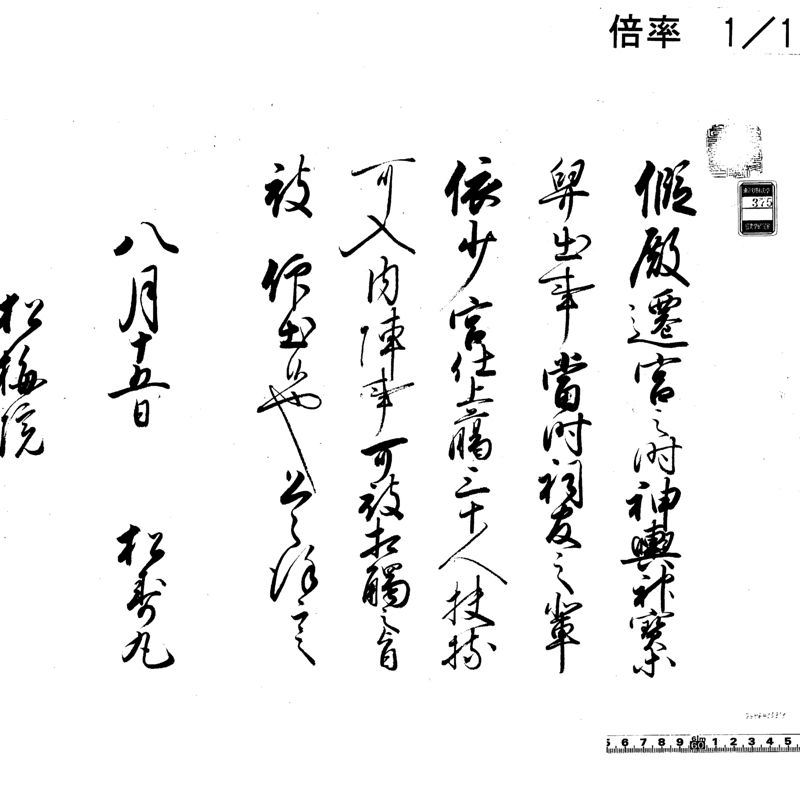 倍率 1/1
375
假殿遷宮之时神輿神寳
舁出事當时祠友之輩
依少宮仕上﨟三十人扶持
可入内陣事可被相觸之旨
被仰出候也恐々謹言
八月十五日 松寿丸
松梅院
5 6 7 8 9 60 1 2 3 4 5